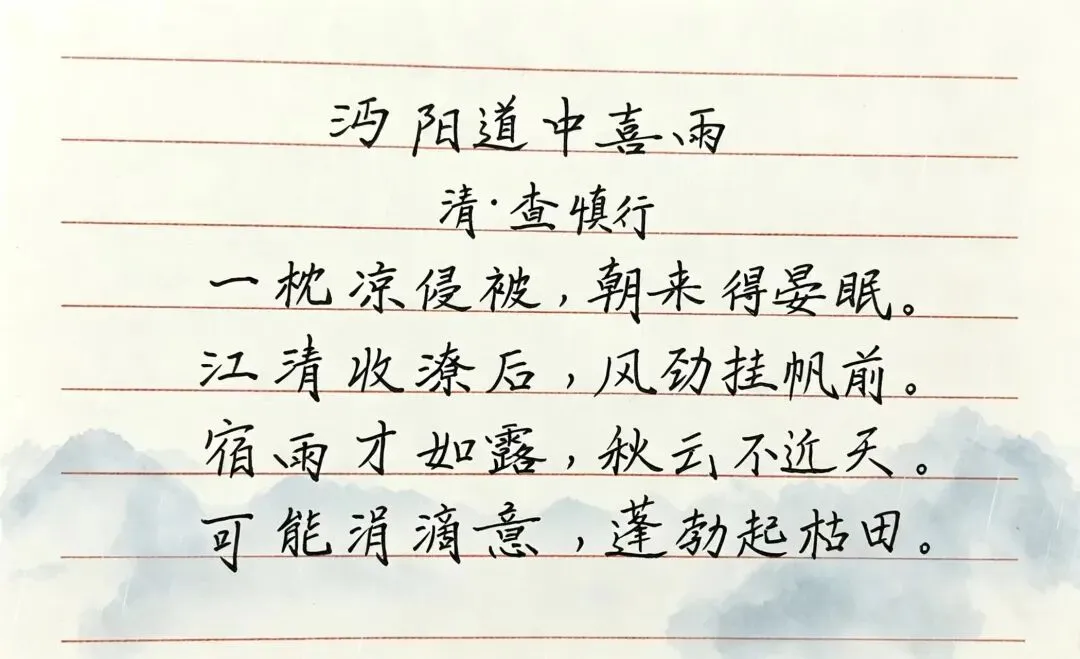 沔阳道中喜雨
清·查慎行
一枕凉侵被,朝来得晏眠。
江清收潦后,风劲挂帆前。
宿雨才如露,秋云不近天。
可能涓滴意,蓬勃起枯田。